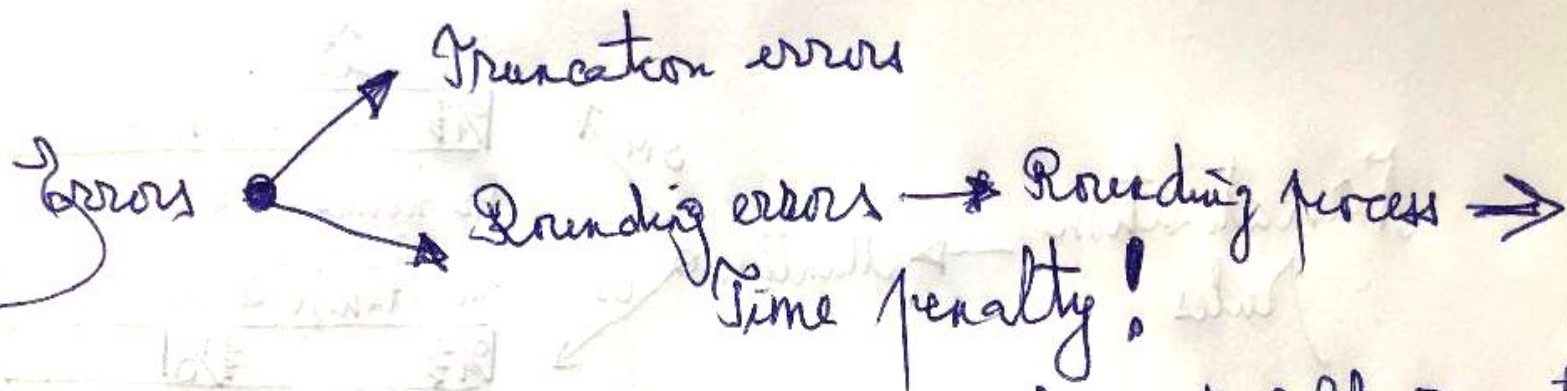 Truncation errors
Errors
Rounding errors → Rounding process ⇒
Time penalty!